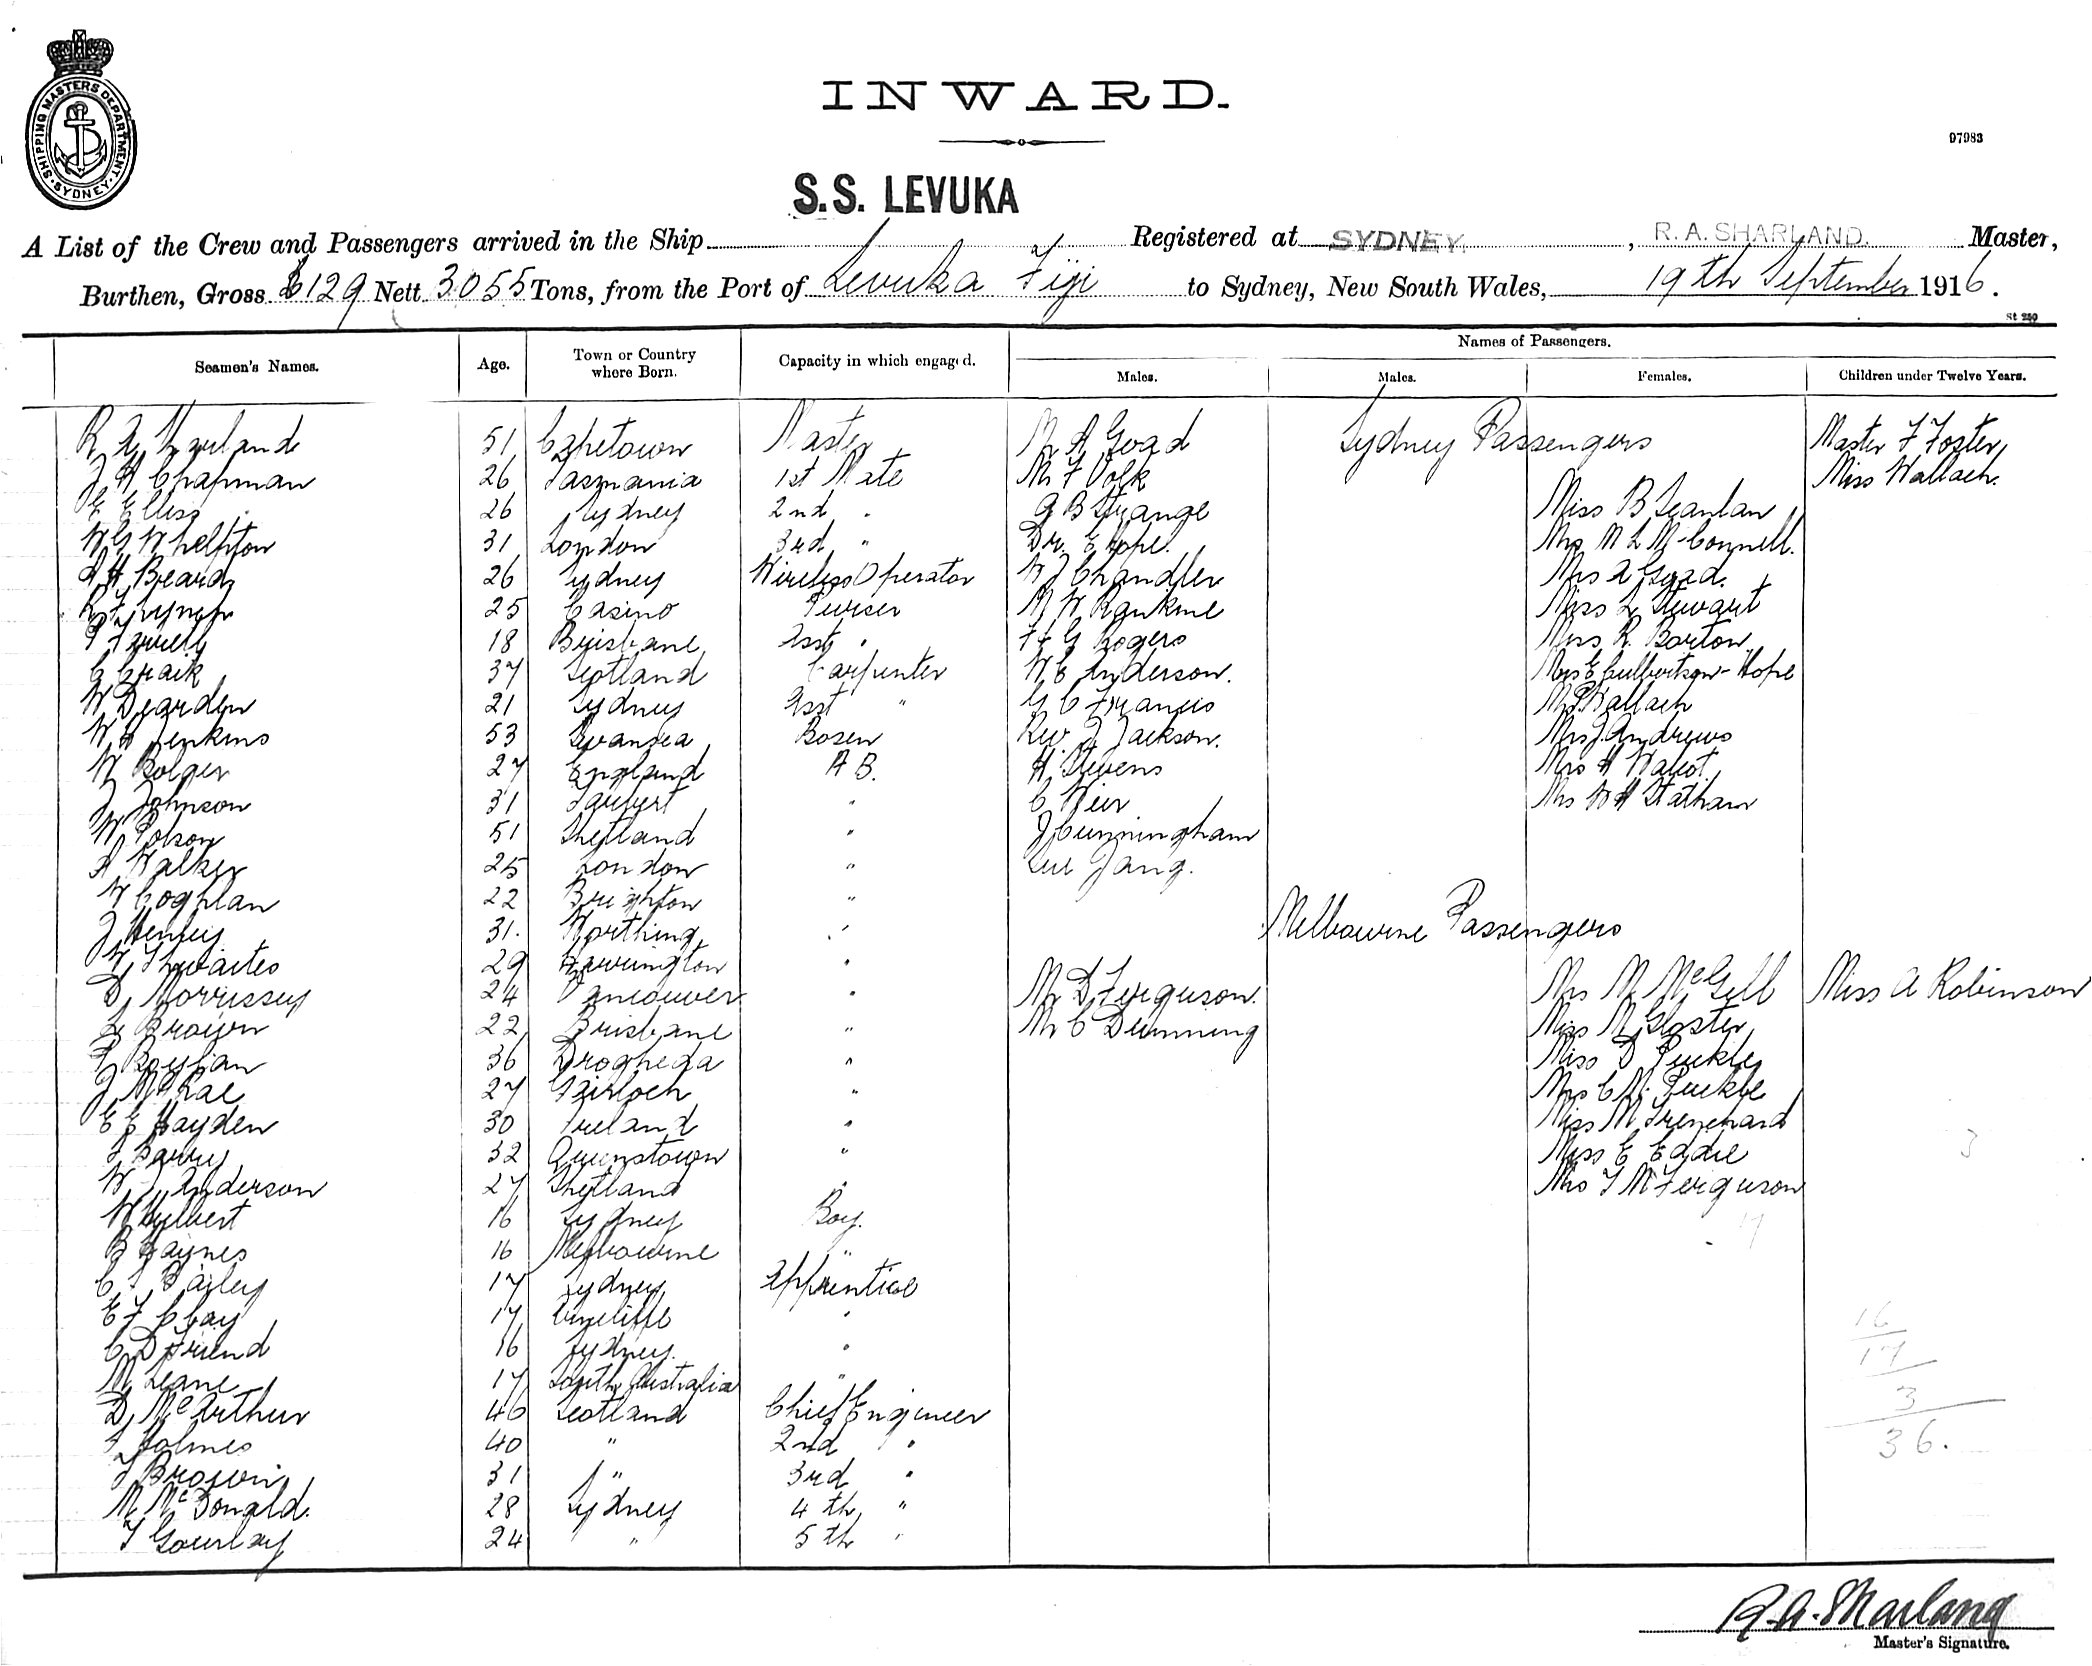 SHIPPING MASTERS DEPARTMENT · SYDNEY ·
INWARD.
97983
S.S. LEVUKA
A List of the Crew and Passengers arrived in the Ship Registered at SYDNEY. , R. A. SHARLAND. Master,
Burthen, Gross 6129 Nett 3055 Tons, from the Port of Levuka Fiji to Sydney, New South Wales, 19th September 1916.
St 250
Names of Passengers.
Seamen's Names. Age. Town or Country where Born. Capacity in which engaged. Males. Males. Females. Children under Twelve Years.
R A Sharland 51 Capetown Master Mr A Goad Sydney Passengers Master F Foster
J A Chapman 26 Tasmania 1st Mate Mr F Volk Miss Wallach.
E Ellis 26 Sydney 2nd " G B Strange Miss B Scanlan
W G Whelpton 31 London 3rd " Dr. E Hope. Mrs M L McConnell.
A H Beard 26 Sydney Wireless Operator W J Chandler Mrs A Goad.
R F Lynch 25 Casino Purser M W Rankine Miss L Stewart
18 Brisbane Asst " F G Rogers Miss R. Barton
G Craik 37 Scotland Carpenter W E Anderson. Mrs E Culbertson-Hope
W Dearden 21 Sydney Asst " G C Francis Mrs Wallach
W H Jenkins 53 Swansea Bosen Rev. J Jackson. Mrs J Andrews
W Bolger 27 England A B. H Stevens Mrs H
J Johnson 31 Tarbert " C Weir Mrs W H Statham
W Polson 51 Shetland " J Cunningham
A Walker 25 London " Lue Jang.
W Coghlan 22 Brighton "
J Henley 31. Worthing " Melbourne Passengers
W Thwaites 29 "
D Morrissey 24 Vancouver " Mr D Ferguson. Mrs M McGill Miss A Robinson
Brown 22 Brisbane " Mr C Dunning Miss M Gloster
Boylan 36 Drogheda " Miss D Puckle
J McRae 27 Gairloch " Mrs C M. Puckle
E G Hayden 30 Ireland " Miss M Trenchard
J Barry 32 Queenstown " Miss E Eddie 3
W J Anderson 27 Shetland " Mrs J M Ferguson
W Gilbert 16 Sydney Boy. 17
B Haynes 16 Melbourne "
C S Bailey 17 Sydney Apprentice
E F Clay 17 "
C D Friend 16 Sydney. " 16
M Leane 17 South Australia " 17
D McArthur 46 Scotland Chief Engineer 3
J Holmes 40 " 2nd " 36.
J Brown 31 " 3rd "
M McDonald. 28 Sydney 4th "
T Gourlay 24 " 5th "
R. A. Sharland
Master's Signature.